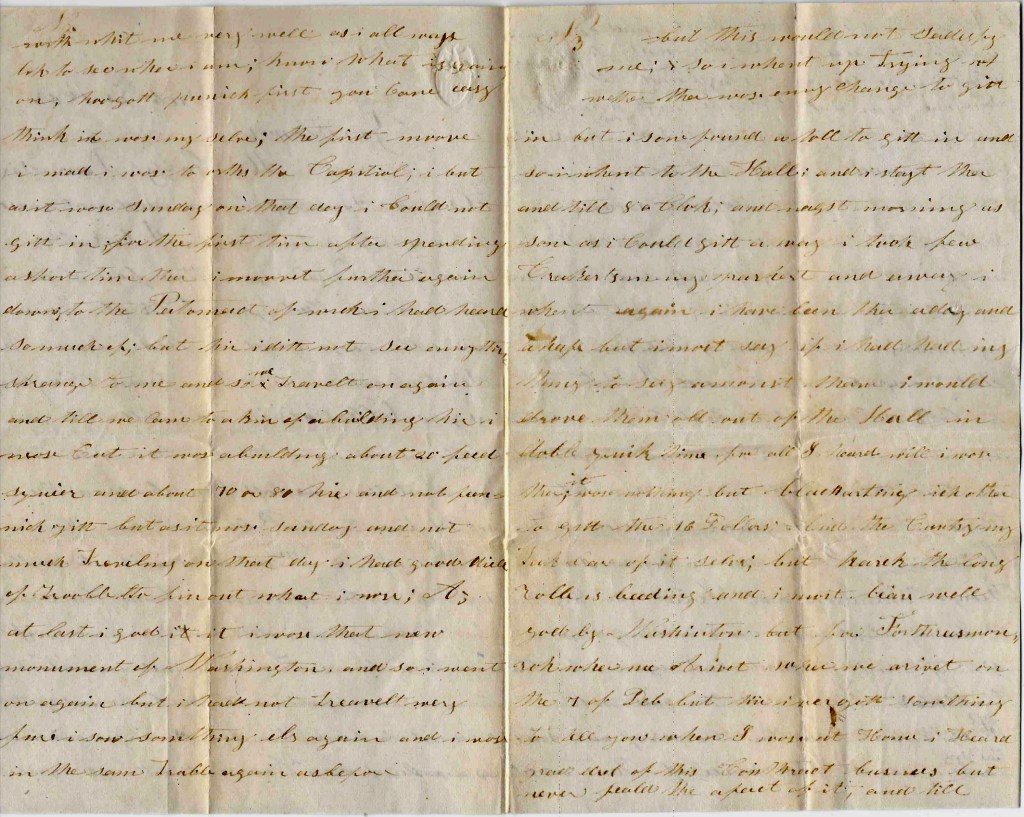 with whit me very well as i all ways
lok to see wher i am; know what is going
on, first you Cane easy
think i wose my selve; the first moove
i mad i wose to the Capitial; i but
as it wose Sunday on that day i Could not
gitt in; for the first tim after spending
a short tim ther i moovet further again
down to the Petomact of wich i had heard
so much of; but hir i ditt not see enny thing
strange to me and so we Travelt on again
and till we Cam to a kin of a building hir i
wose it wose a building about 20 feed
squier and about 70 or 80 hie and not
gitt but as it wose sunday and not
much Traveling on that day i had good diel
of Trooble to fin out what i wose; A;
at last i godt it it wose that new
monument of Washington and so i went
on again but i hadt not Treavelt wery
fur i sow something els again and i wose
in the sam Trable again as befor
but this would not Sadesfy
me; & so i whent up Trying of
wether ther wose enny Change to gitt
in but i sone found a to gitt in and
so i whent to the Hall; and i stayt ther
and till 8 o Clok; and nagst morning as
sone as i Could gitt a way i took few
Crakerts in my and away i
whent again i have been ther a day and
a hafe but i most say if i had had ing
Thing to sey amonst theem i would
drove them all out of the Hall in
dobll quick Time for all I heard will i wose
ther; it wose nothing but ich other
to gitt the 16 Dollars the Cuntry my
of it selve; but harck the long
Rolle is beeding and i most bian well
godt by Washinton but for Forthresmon,
rok wher we arivet on
the 7 of Feb but hir i vergott something
to tell you when I wose at Home i Heard
grad del of this Conthract busnes but
never the afact of it; and till